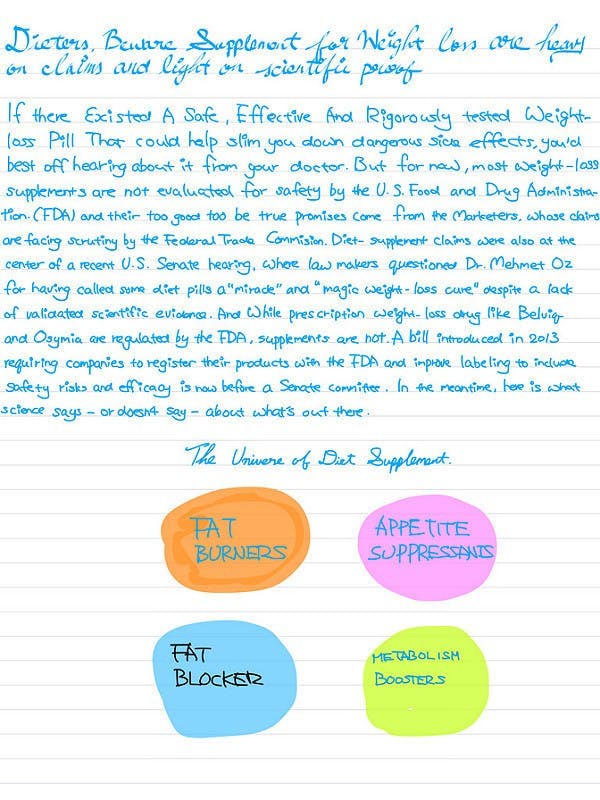 Dieters, Beware Supplement for Weight loss are heavy
on claims and light on scientific proof
If there Existed A Safe, Effective And Rigorously tested Weight-
loss Pill That could help slim you down dangerous side effects, you'd
best off hearing about it from your doctor. But for now, most weight-loss
supplements are not evaluated for safety by the U.S. Food and Drug Administra-
tion. (FDA) and their too good too be true promises come from the Marketers, whose claims
are facing scrutiny by the Federal Trade Commision. Diet- supplement claims were also at the
center of a recent U.S. Senate hearing, where law makers questioned Dr. Mehmet Oz
for having called some diet pills a "miracle" and "magic weight-loss cure" despite a lack
of validated scientific evidence. And While prescription weight-loss drug like Belviq
and Qsymia are regulated by the FDA, supplements are not. A bill introduced in 2013
requiring companies to register their products with the FDA and improve labeling to include
safety risks and efficacy is now before a Senate committee. In the meantime, here is what
science says - or doesn't say - about what's out there.
The Univere of Diet Supplement.
FAT
BURNERS
APPETITE
SUPPRESSANTS
FAT
BLOCKER
METABOLISM
BOOSTERS